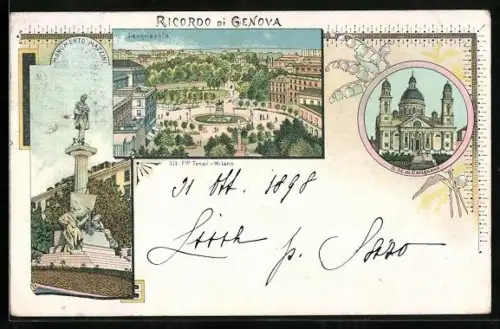 RICORDO di GENOVA
MONUMENTO MAZZINI
Lacquasola
Lit. F.lli Tensi - Milano
S. M. di Carignano
21 Ott. 1898
p.